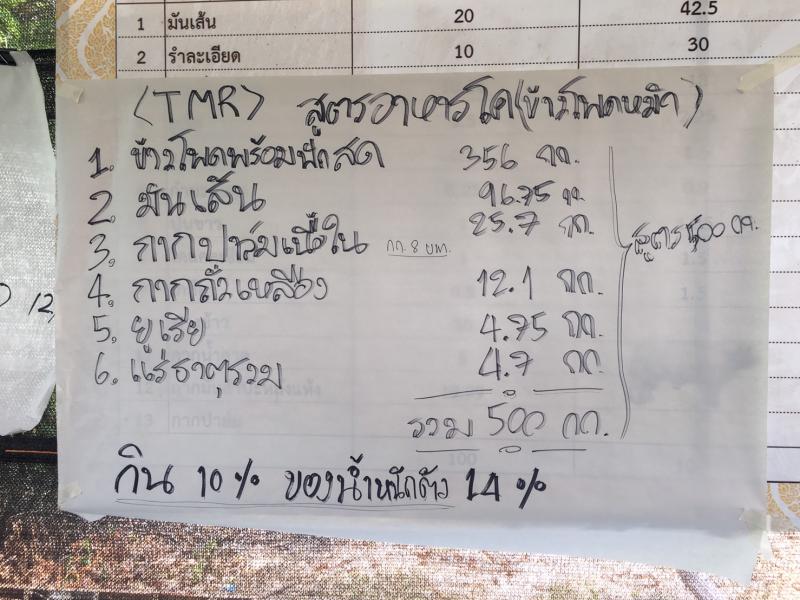 1 มันเส้น 20 42.5
2 รำละเอียด 10 30
(TMR) สูตรอาหารโค(ข้าวโพดหมัก)
1. ข้าวโพดพร้อมฝักสด 356 กก.
2. มันเส้น 96.75 กก.
3. กากปาล์มเนื้อใน กก. 8 บาท. 25.7 กก.
สูตร 500 กก.
4. กากถั่วเหลือง 12.1 กก.
12,
5. ยูเรีย 4.75 กก.
6. แร่ธาตุรวม 4.7 กก.
รวม 500 กก.
13 กากปาล์ม
100
กิน 10% ของน้ำหนักตัว 14%